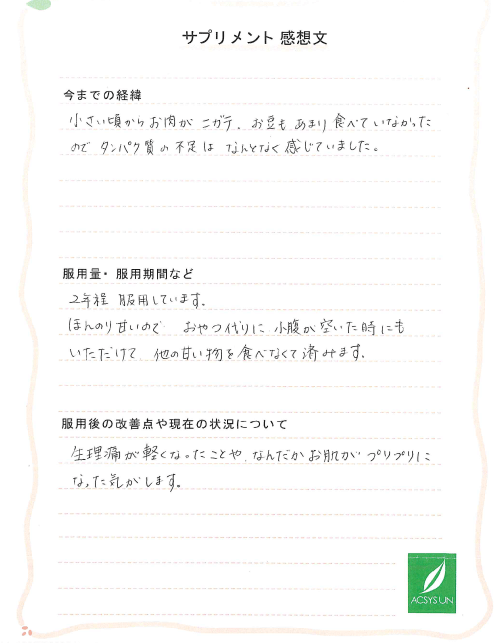 サプリメント 感想文
今までの経緯
小さい頃からお肉がニガテ、お豆もあまり食べていなかった
ので タンパク質の不足は なんとなく感じていました。
服用量・服用期間など
2年程 服用しています。
ほんのり甘いので おやつ代りに 小腹が空いた時にも
いただけて 他の甘い物を食べなくて済みます。
服用後の改善点や現在の状況について
生理痛が軽くなったことや、なんだかお肌がプリプリに
なった気がします。
ACSYSUN